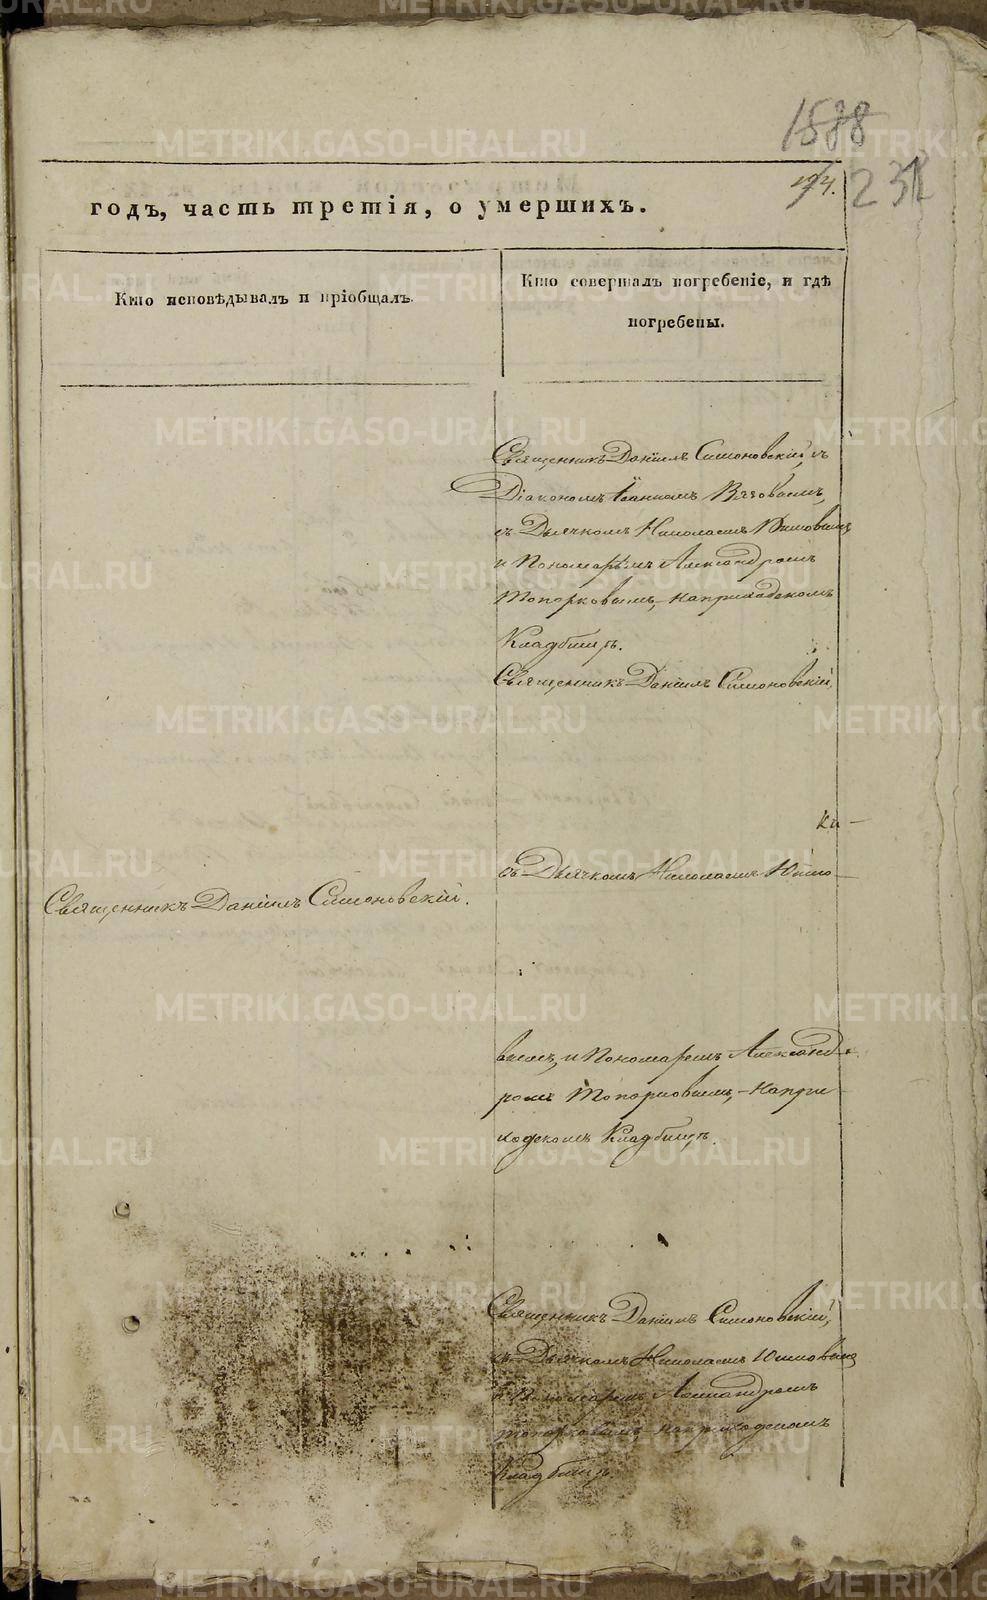 1588
194.
232
годъ, часть третія, о умершихъ.
Кто исповѣдывалъ и пріобщалъ.
Кто совершалъ погребеніе, и гдѣ
погребены.
Священникъ Даніилъ Симоновскій, съ
Діакономъ Іоанномъ
съ Дьячкомъ Николаемъ
и Пономарёмъ Александромъ
Топорковымъ, на приходскомъ
Кладбищѣ.
Священникъ Даніилъ Симоновскій,
съ Дьячкомъ Николаемъ
Священникъ Даніилъ Симоновскій.
вымъ, и Пономаремъ Александ-
ромъ Топорковымъ, на при-
ходскомъ Кладбищѣ.
Священникъ Даніилъ Симоновскій,
съ Дьячкомъ Николаемъ
и Пономаремъ Александромъ
Топорковымъ на приходскомъ
Кладбищѣ.
METRIKI.GASO-URAL.RU